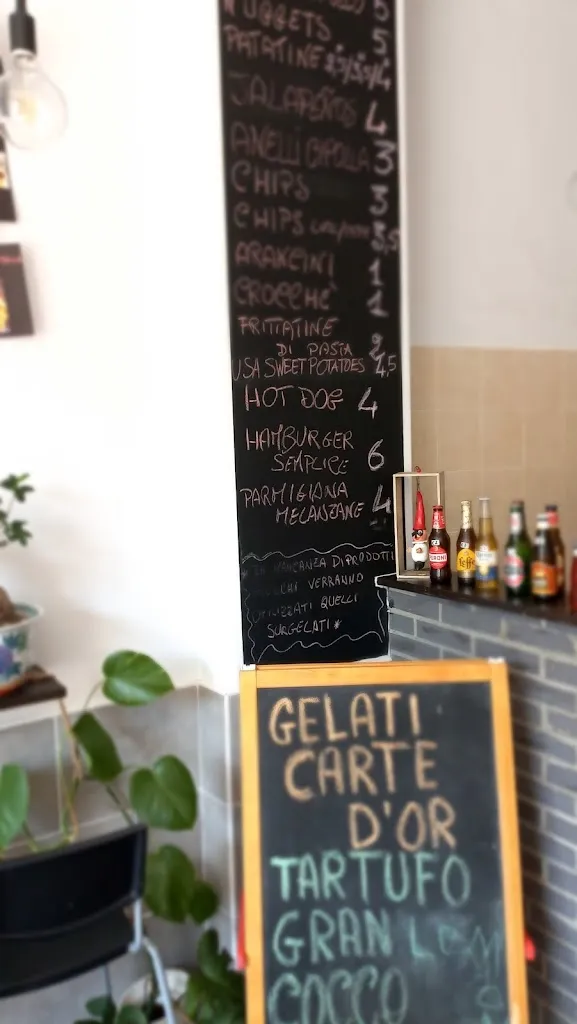 5
NUGGETS 5
PATATINE 4
JALAPEÑOS 4
ANELLI CIPOLLA 3
CHIPS 3
CHIPS 3,5
ARANCINI 1
CROCCHE' 1
FRITTATINE
DI PASTA 2
USA SWEET POTATOES 4,5
HOT DOG 4
HAMBURGER
SEMPLICE 6
PARMIGIANA
MELANZANE 4
MANCANZA DI PRODOTTI
VERRANNO
UTILIZZATI QUELLI
SURGELATI*
PERONI
Leffe
GELATI
CARTE
D'OR
TARTUFO
GRAN
COCCO